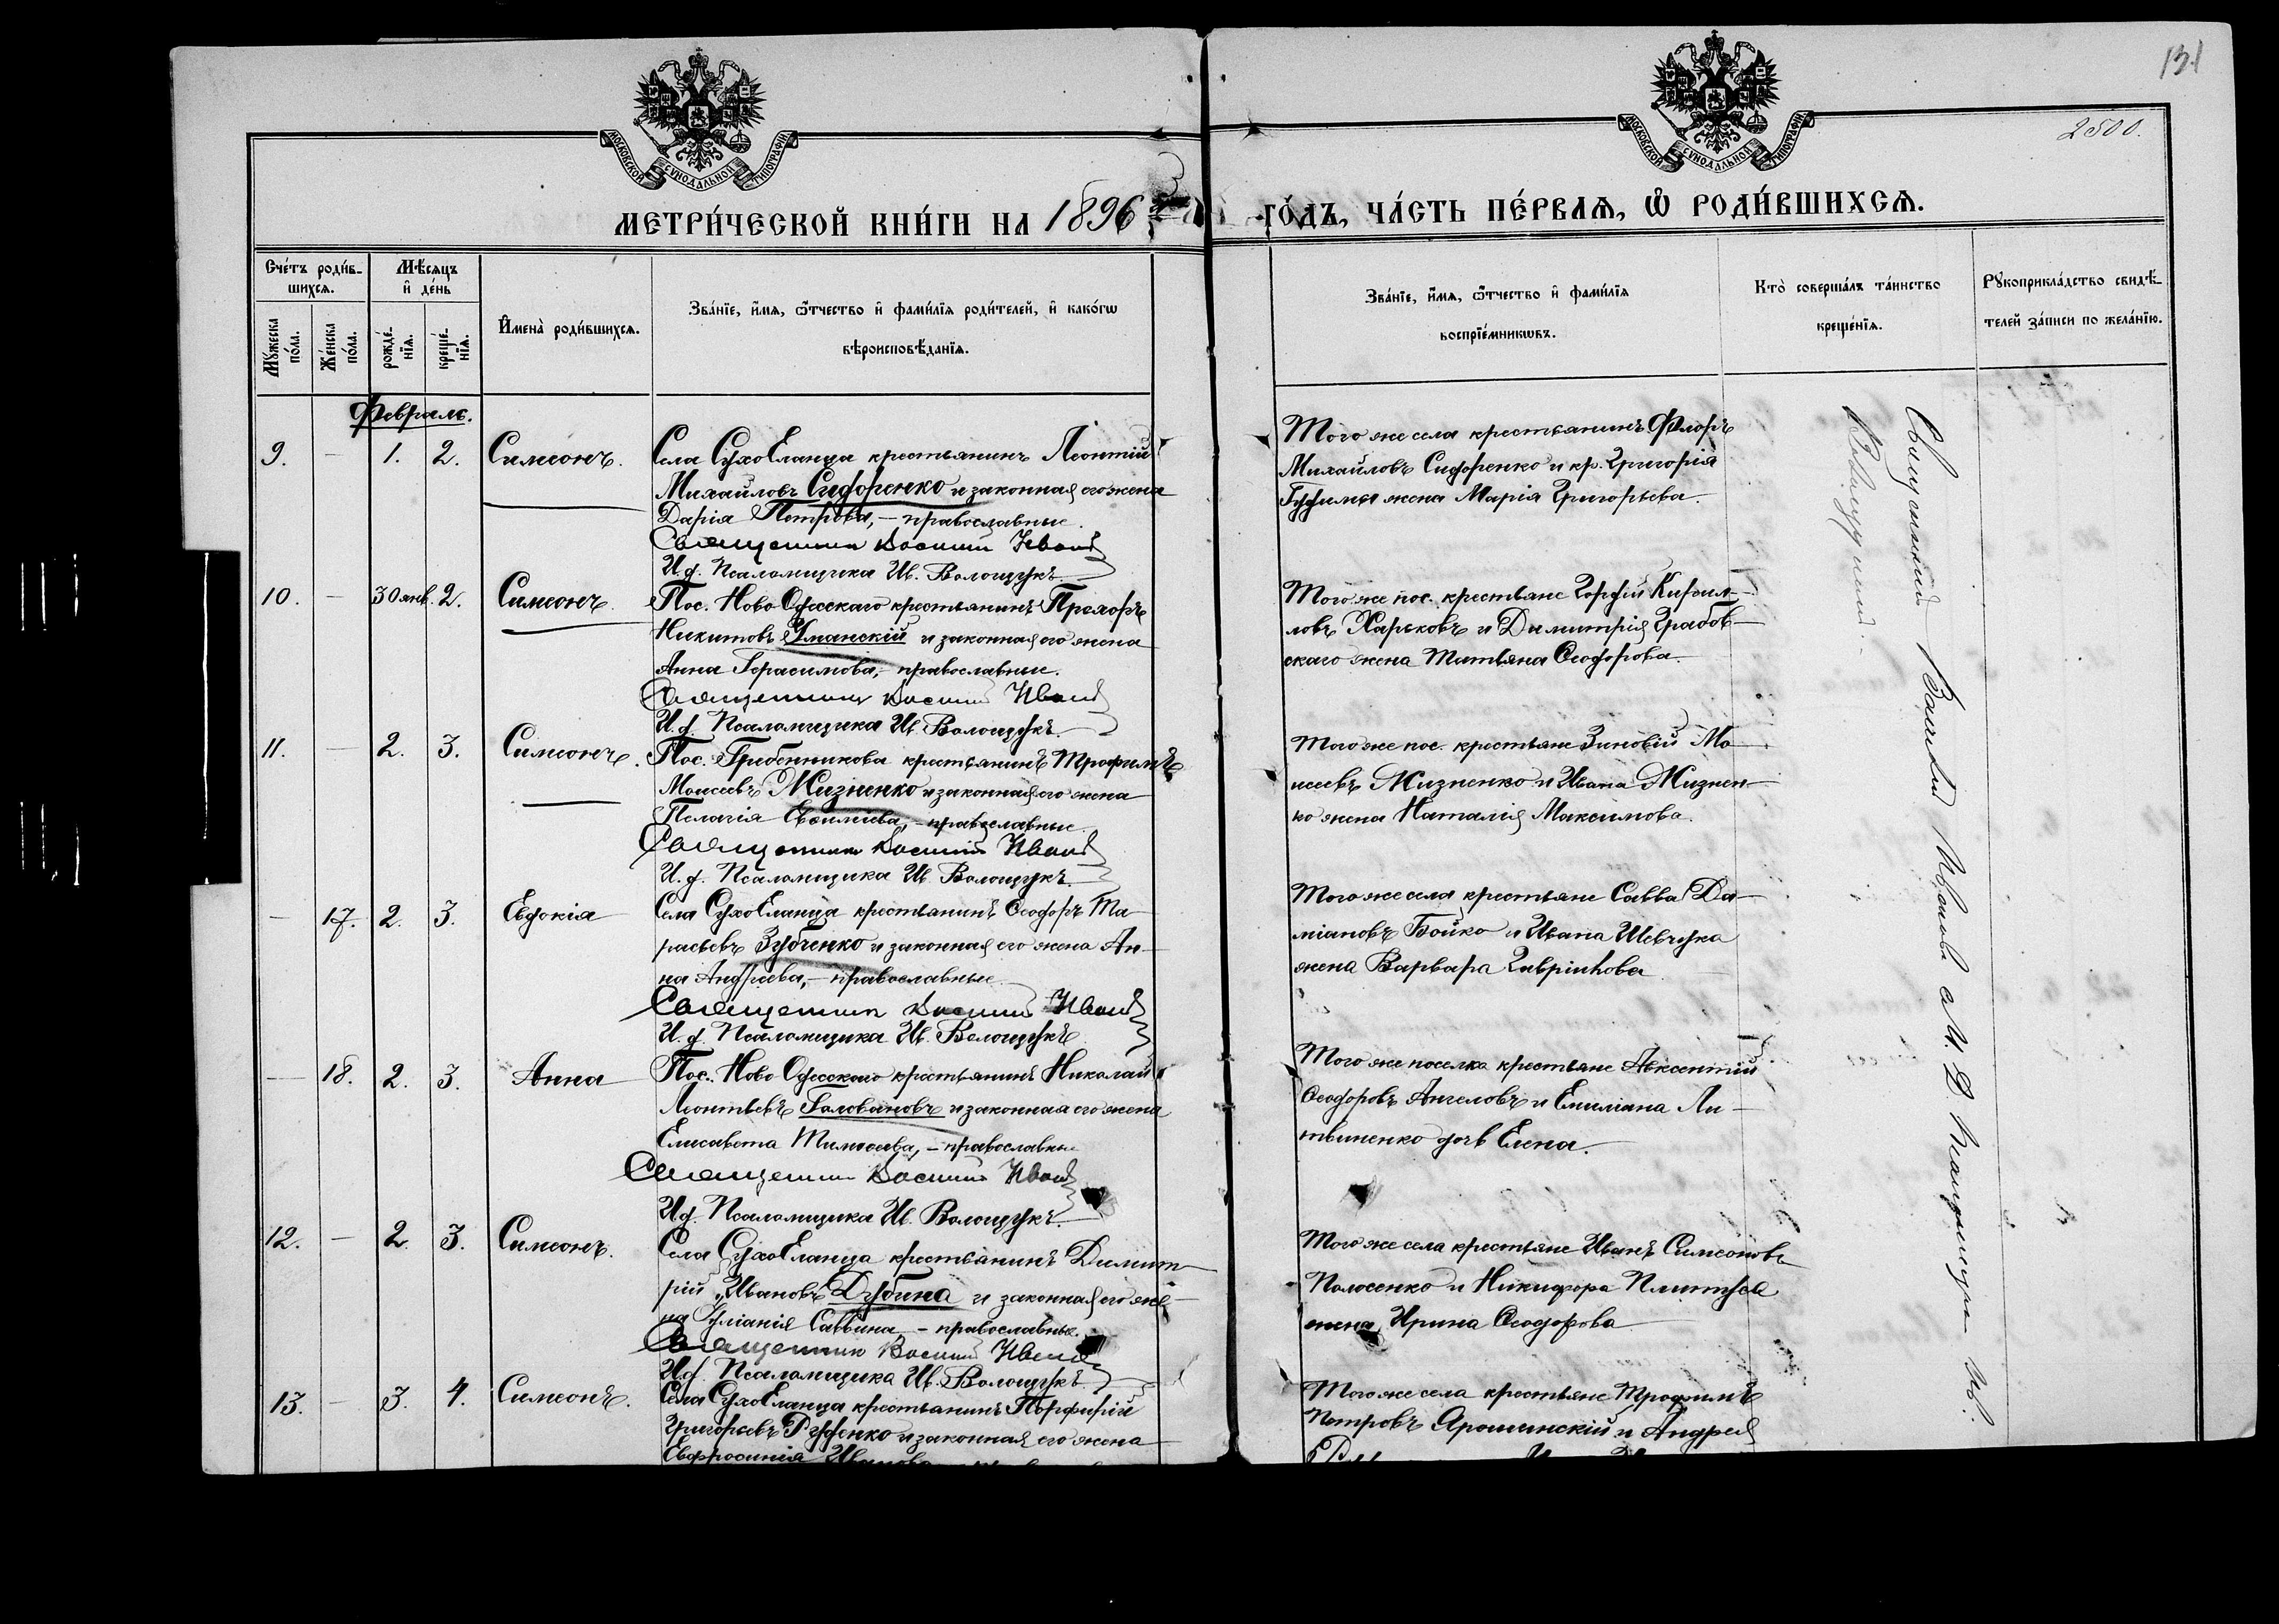 131
2500.
МОСКОВСКОЙ СУНОДАЛЬНОЙ ТИПОГРАФІИ
МОСКОВСКОЙ СУНОДАЛЬНОЙ ТИПОГРАФІИ
МЕТРИ́ЧЕСКОЙ КНИ́ГИ НА 1896
ГО́ДЪ, ЧА́СТЬ ПЕ́РВАѦ, Ѡ РОДИ́ВШИХСѦ.
Сче́тъ роди́в-
шихсѧ.
Мꙋжеска по́ла.
Же́нска по́ла.
Мѣ́сѧцъ
и҆ де́нь
рожде́-
нїѧ.
креще́-
нїѧ.
И҆мена̀ роди́вшихсѧ.
Зва́нїе, и҆́мѧ, ѻ҆́тчество и҆ фами́лїѧ роди́телей, и҆ како́гѡ
вѣроисповѣ́данїѧ.
Зва́нїе, и҆́мѧ, ѻ҆́тчество и҆ фами́лїѧ
воспрїе́мникѡвъ.
Кто̀ соверша́лъ та́инство
креще́нїѧ.
Рꙋкоприкла́дство свидѣ́-
телей за́писи по жела́нїю.
Февраль.
9. — 1. 2. Симеонъ.
Села СухоЕланца крестьянинъ Леонтій
Михайловъ Сидоренко и законная его жена
Дарія Петрова, — православные.
Священникъ Василий Иванов
И.д. Псаломщика Ив. Волощукъ.
Того же села крестьянинъ Флоръ
Михайловъ Сидоренко и кр. Григорія
жена Марія Григорьева.
10. — 30 янв. 2. Симеонъ.
Пос. Ново Одесскаго крестьянинъ Прохоръ
Никитовъ Уманскій и законная его жена
Анна Герасимова, — православные.
Священникъ Василий Иванов
И.д. Псаломщика Ив. Волощукъ.
Того же пос. крестьяне Гордій Кирил-
ловъ Харьковъ и Димитрія Грабов-
скаго жена Татьяна Ѳеодорова.
11. — 2. 3. Симеонъ.
Пос. Гребенникова крестьянинъ Трофимъ
Моисеевъ Мизненко и законная его жена
Пелагія Евфиміева, — православные.
Священникъ Василий Иванов
И.д. Псаломщика Ив. Волощукъ.
Того же пос. крестьяне Зиновій Мо-
исеевъ Мизненко и Ивана Мизнен-
ко жена Наталія Максимова.
— 17. 2. 3. Евдокія
Села СухоЕланца крестьянинъ Ѳеодоръ Та-
расьевъ Зубченко и законная его жена Ан-
на Андреева, — православные.
Священникъ Василий Иванов
И.д. Псаломщика Ив. Волощукъ.
Того же села крестьяне Савва Да-
міановъ Бойко и Ивана Шевчука
жена Варвара Гавріилова
— 18. 2. 3. Анна
Пос. Ново Одесскаго крестьянинъ Николай
Леонтьевъ Головановъ и законная его жена
Елисавета Тимоѳеева, — православные
Священникъ Василий Иванов
И.д. Псаломщика Ив. Волощукъ.
Того же поселка крестьяне Авксентій
Ѳеодоровъ Ангеловъ и Емиліана Ли-
твиненко дочь Елена.
12. — 2. 3. Симеонъ.
Села СухоЕланца крестьянинъ Димит-
рій Ивановъ Дубина и законная его же-
на Іуліанія Саввина, — православные.
Священникъ Василий Иванов
И.д. Псаломщика Ив. Волощукъ.
Того же села крестьяне Иванъ Симеоновъ
Полосенко и Никифора
жена Ирина Ѳеодорова
13. — 3. 4. Симеонъ.
Села СухоЕланца крестьянинъ Порфирій
Григорьевъ Руденко и законная его жена
Евфросинія Иванова
Того же села крестьяне Трофимъ
Петровъ Ярошинскій и Андрея
Священникъ Василий Иванов с И. Д. Псаломщика Ив.
Волощукомъ.